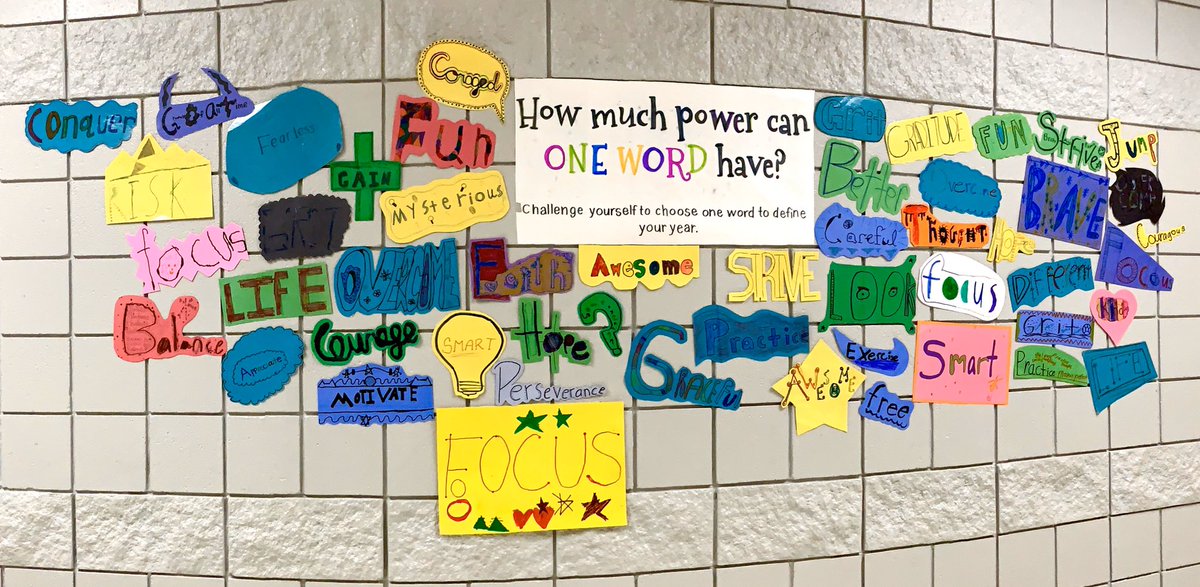 How much power can
ONE WORD have?
Challenge yourself to choose one word to define
your year.
Conquer
RISK
Fearless
GAIN
Fun
Mysterious
GRIT
FOCUS
LIFE
Awesome
STRIVE
Balance
Courage
SMART
Hope?
MOTIVATE
Perseverance
GRACEFUL
Practice
FOCUS
FO
Grit
GRATITUDE
FUN
Strive
JUMP
Better
Overcome
BRAVE
Careful
THOUGHT
Couragous
LOOK
focus
Different
Smart
AWESOME
Exercise
free
Practice